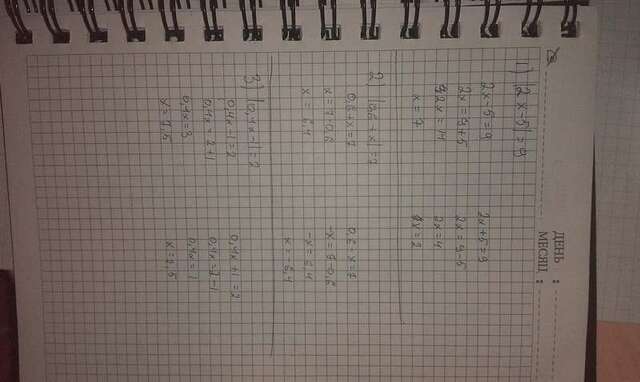 ДЕНЬ
МЕСЯЦ
1) |2x-5|=9
2x-5=9 2x+5=9
2x=9+5 2x=9-5
2x=14 2x=4
x=7 x=2
2) |0,6+x|=7
0,6+x=7 0,6-x=7
x=7-0,6 -x=7-0,6
x=6,4 -x=6,4
x=6,4
3) |0,4x-1|=2
0,4x-1=2 0,4x+1=2
0,4x=2+1 0,4x=2-1
0,4x=3 0,4x=1
x=7,5 x=2,5